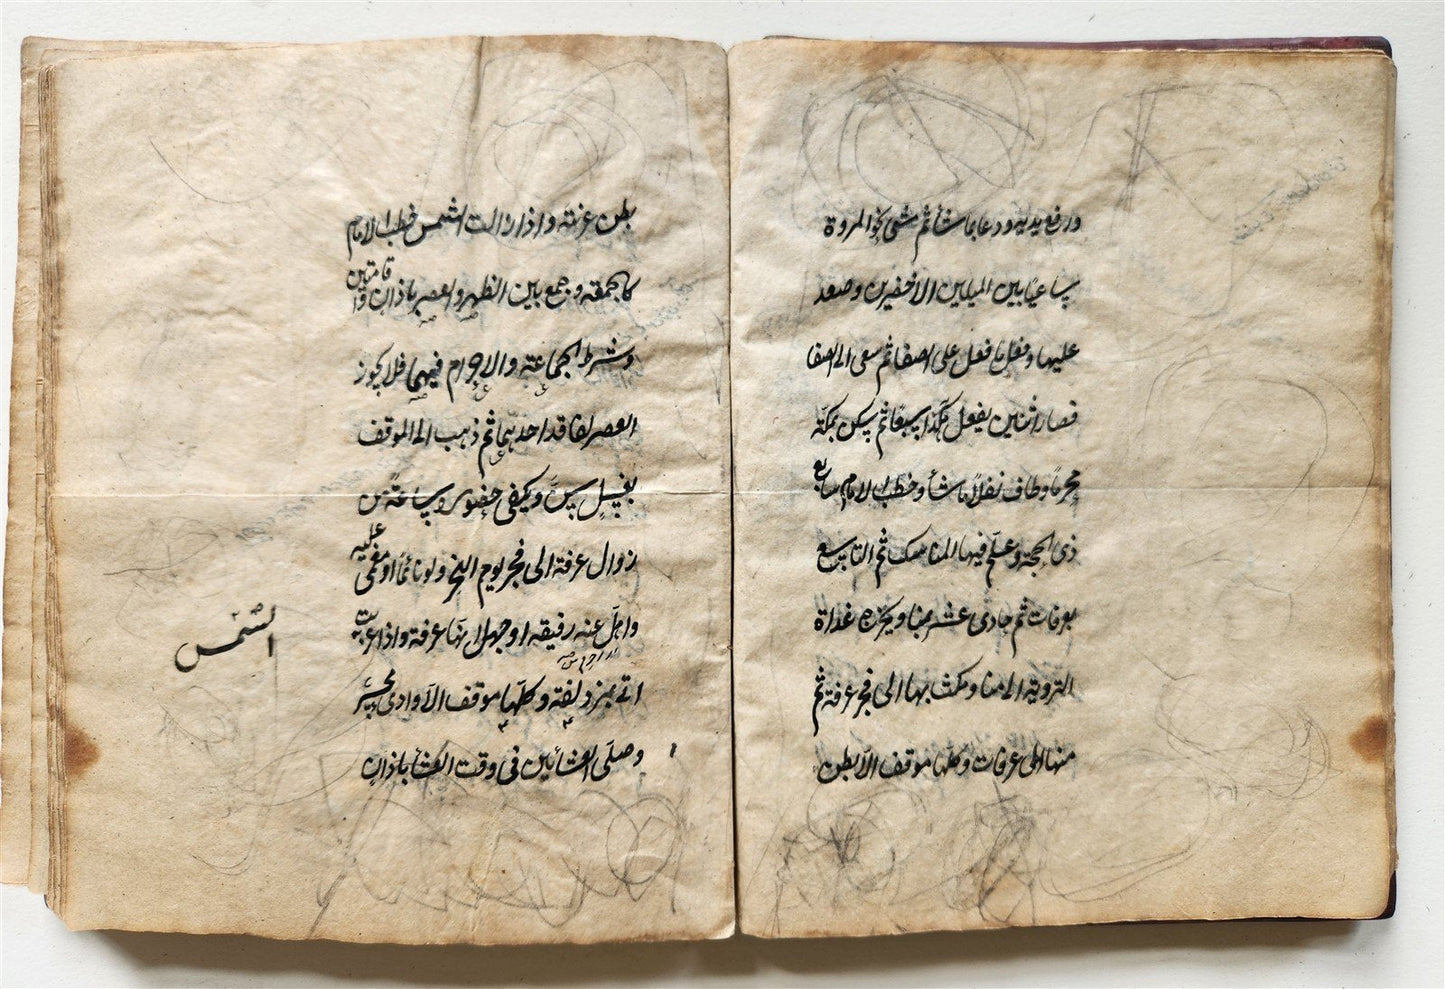 ورفع يديه ودعا بما شاء ثم مشى نحو المروة
ساعيا بين الميلين الاخضرين وصعد
عليها وفعل ما فعل على الصفا ثم سعى الى الصفا
فصار اثنين يفعل هكذا سبعا ثم يسكن بمكة
محرمًا وطاف نفلًا ما شاء وخطب الامام سابع
ذى الحجة وعلّم فيها المناسك ثم التاسع
بعرفات ثم حادى عشر بمنا ويخرج غداة
التروية الى منا ومكث بها الى فجر عرفة ثم
منها الى عرفات وكلّها موقف الّا بطن
بطن عرنة واذا زالت الشمس خطب الامام
كالجمعة وجمع بين الظهر والعصر باذان واقامتين
وشرط الجماعة والاحرام فيهما فلا يجوز
العصر لفاقد احدهما ثم ذهب الى الموقف
بغسل سنّ ويكفى حضور ساعة من
زوال عرفة الى فجر يوم النحر ولو نائمًا او مغمى عليه
واهلّ عنه رفيقه او جهل انها عرفة واذا غربت
اتى مزدلفة وكلّها موقف الّا وادى محسّر
وصلّى العشائين فى وقت العشا باذان
الشمس